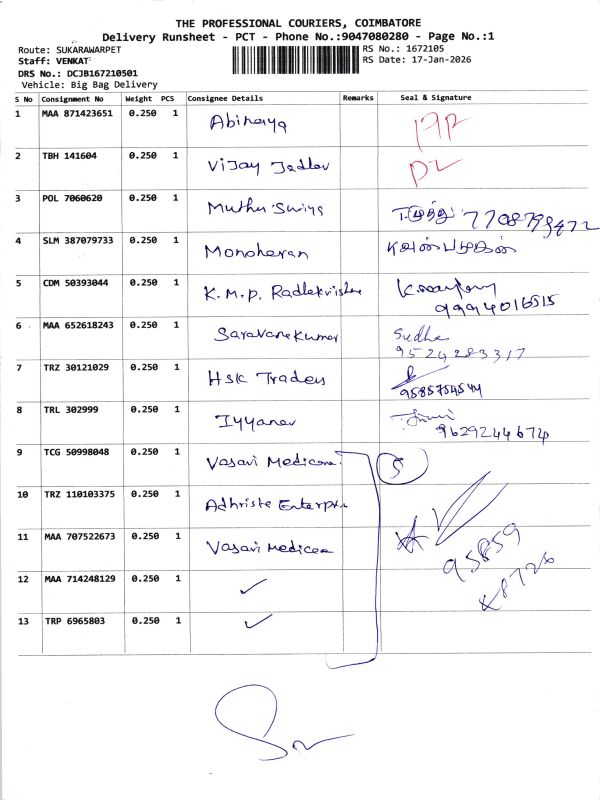 THE PROFESSIONAL COURIERS, COIMBATORE
Delivery Runsheet - PCT - Phone No.:9047080280 - Page No.:1
Route: SUKARAWARPET RS No.: 1672105
Staff: VENKAT RS Date: 17-Jan-2026
DRS No.: DCJB167210501
Vehicle: Big Bag Delivery
S No Consignment No Weight PCS Consignee Details Remarks Seal & Signature
1 MAA 871423651 0.250 1 Abinaya
2 TBH 141604 0.250 1 Vijay Jadhav
3 POL 7060620 0.250 1 Muthu Suriya
4 SLM 387079733 0.250 1 Manoharan
5 CDM 50393044 0.250 1 K.M.P. Radhakrishna 9994016515
6 MAA 652618243 0.250 1 Saravanakumar Sudha
9524283317
7 TRZ 30121029 0.250 1 HSK Traders
8 TRL 302999 0.250 1 Iyyanar
9629244674
9 TCG 50998048 0.250 1 Vasavi Medicare 5
10 TRZ 110103375 0.250 1 Adhriste
11 MAA 707522673 0.250 1 Vasavi
95859
12 MAA 714248129 0.250 1 ✓
13 TRP 6965803 0.250 1 ✓